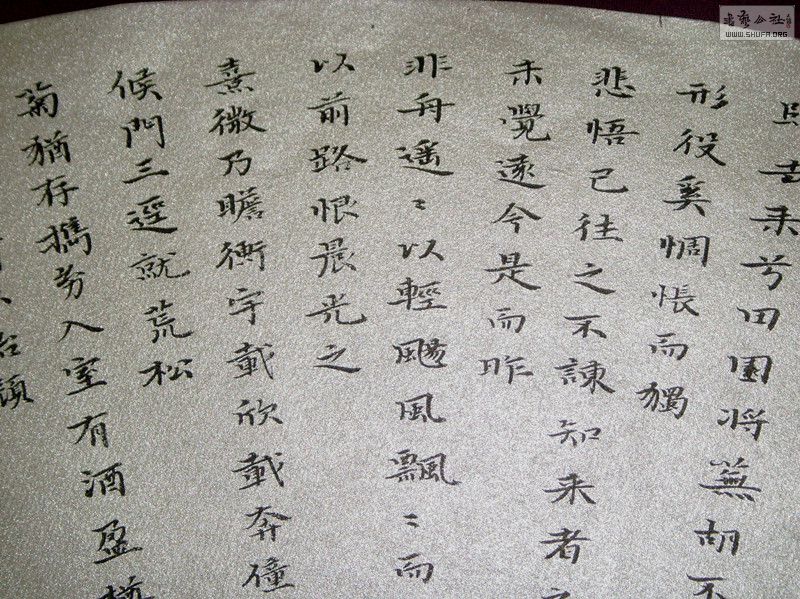 去来兮田園将蕪胡不
形役奚惆悵而獨
悲悟已往之不諫知来者之
未覺遠今是而昨
非舟遥〻以輕颺風飄〻而
以前路恨晨光之
熹微乃瞻衡宇載欣載奔僮
候門三逕就荒松
菊猶存攜幼入室有酒盈樽
怡顔
书艺公社
WWW.SHUFA.ORG